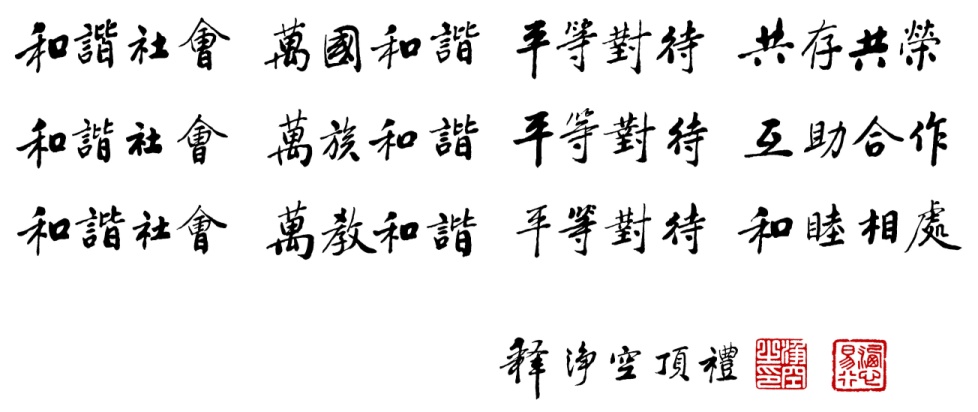 和諧社會 萬國和諧 平等對待 共存共榮
和諧社會 萬族和諧 平等對待 互助合作
和諧社會 萬教和諧 平等對待 和睦相處
释淨空頂禮